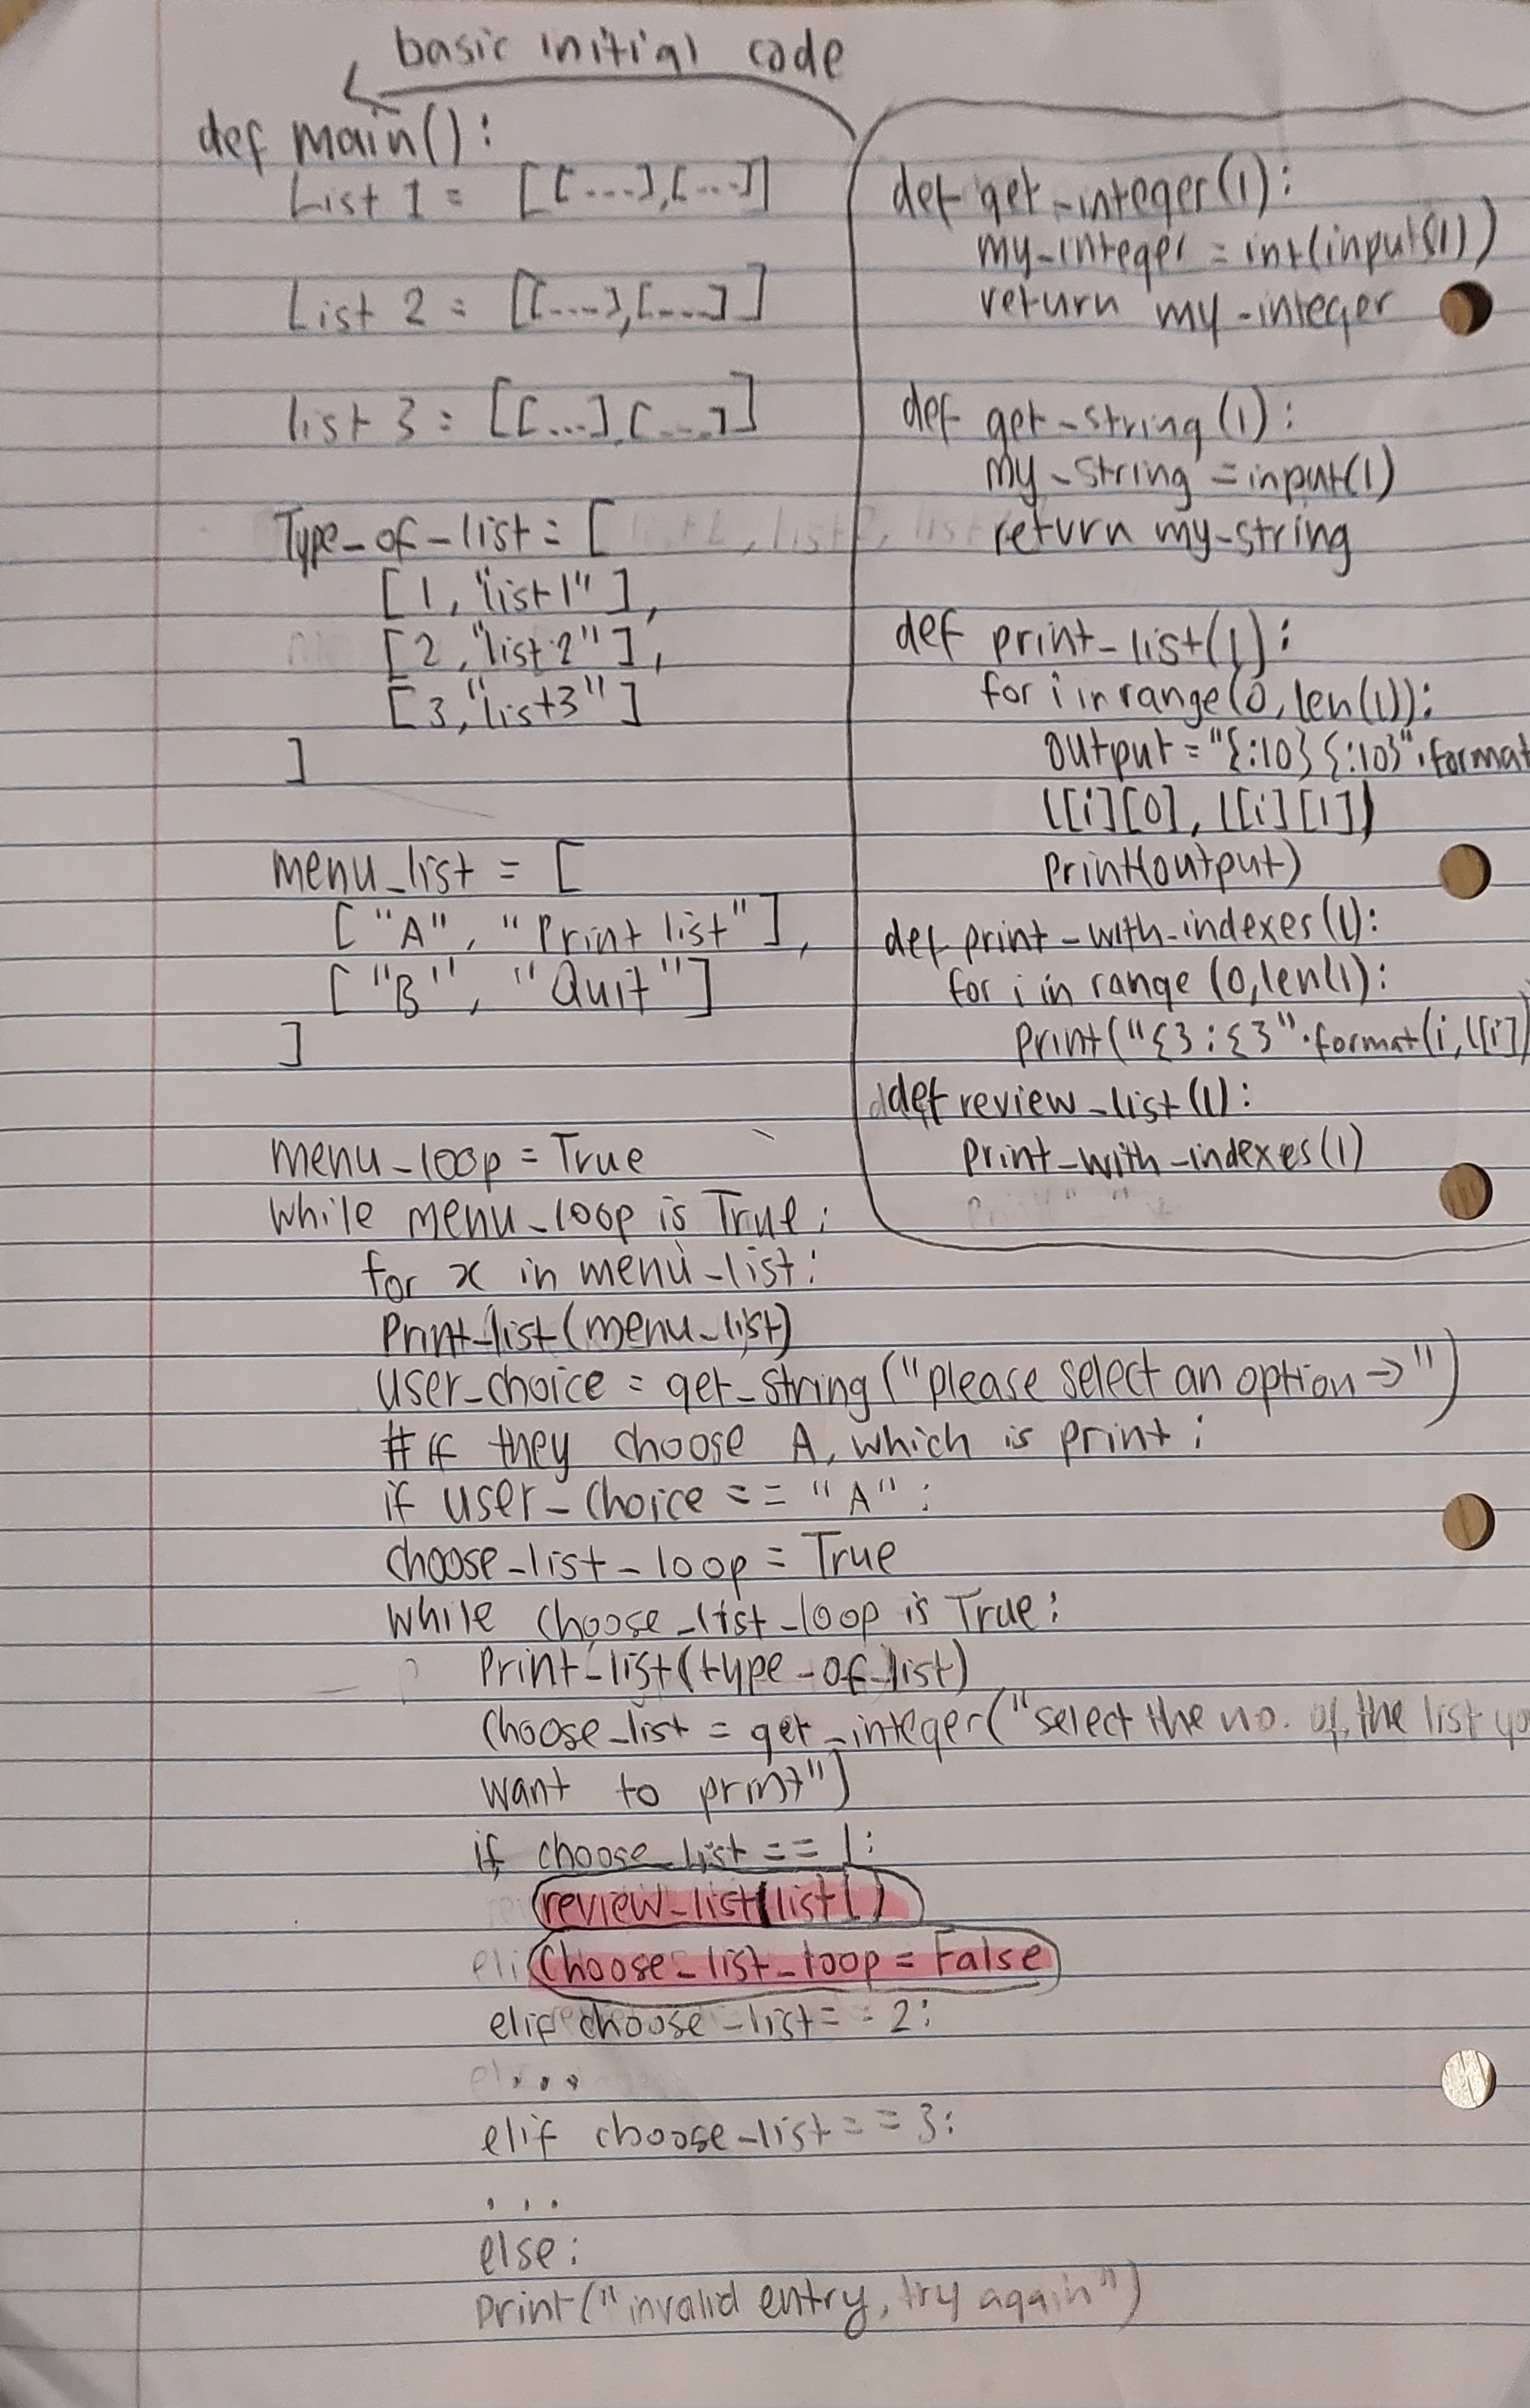 basic initial code
def main():
List 1 = [[....],[...]]
List 2 = [[....],[....]]
list 3 = [[...],[....]]
Type_of_list = [
[1, "list1"],
[2, "list2"],
[3, "list3"]
]
menu_list = [
["A", "Print list"],
["B", "Quit"]
]
menu_loop = True
while menu_loop is True:
for x in menu_list:
Print_list(menu_list)
user_choice = get_string("please select an option →")
# if they choose A, which is print:
if user_choice == "A":
choose_list_loop = True
while choose_list_loop is True:
Print_list(type_of_list)
choose_list = get_integer("select the no. of the list yo
want to print")
if choose_list == 1:
review_list(list1)
choose_list_loop = False
elif choose_list == 2:
...
elif choose_list == 3:
...
else:
print("invalid entry, try again")
def get_integer(l):
my_integer = int(input(l))
return my_integer
def get_string(l):
my_string = input(l)
return my_string
def print_list(l):
for i in range(0, len(l)):
output = "{:10} {:10}".format
l[i][0], l[i][1])
print(output)
def print_with_indexes(l):
for i in range (0, len(l):
print("{}:{}".format(i, l[i])
def review_list(l):
print_with_indexes(l)